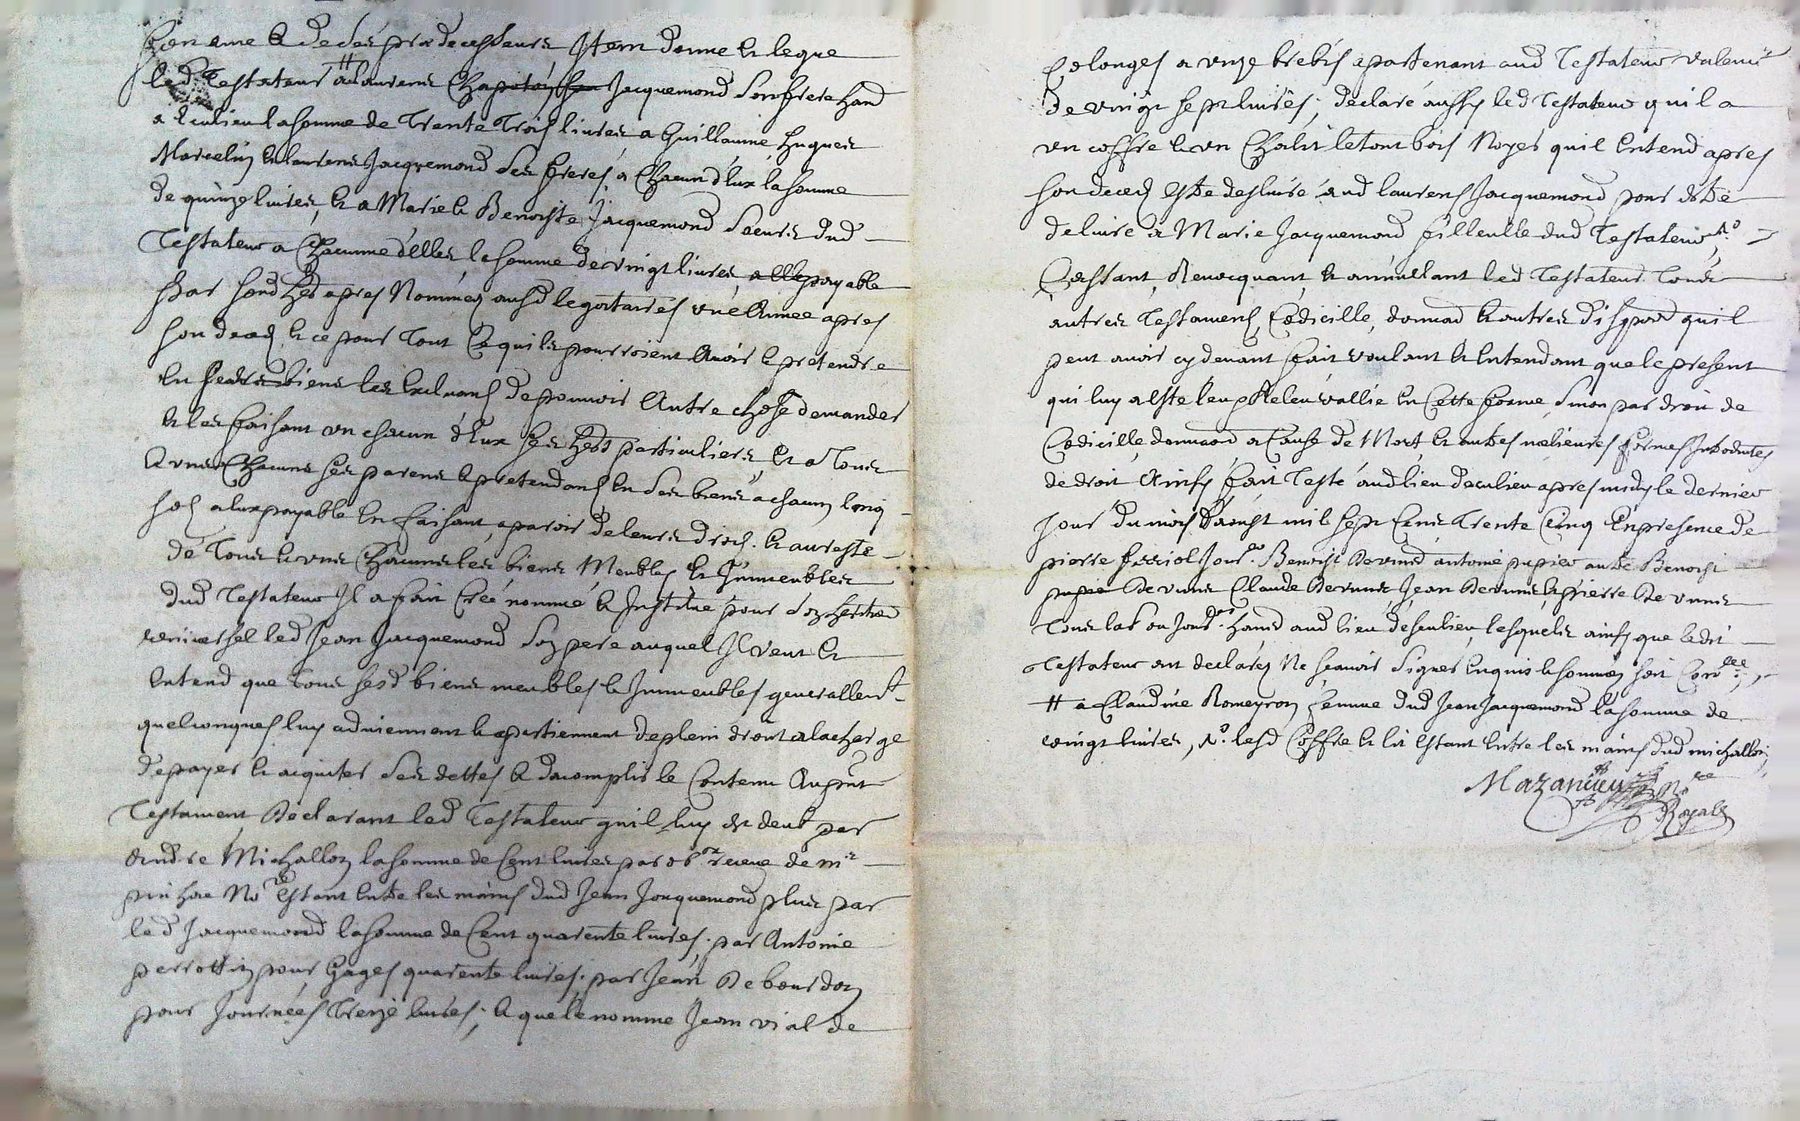 son ame & de ses predecesseurs Item donne et legue
led. Testateur # a Laurens Jacquemond son frere
a Culieu la somme de Trente Trois livres, a Guillaume, hugues
Marcelin et laurens Jacquemond ses freres, a Chacun d'Eux la somme
de quinze livres, et a Marie & Benoiste Jacquemond soeurs dud
Testateur a Chacunne d'elles, la somme de vingt livres, payable
par sond hër apres Nommez ausd legataires une Année apres
son deced et ce pour Tout Ce quils pourroient Avoir & pretendre
En biens les Excluant de pouvoir Autre chose demander
& les faisant un chacun d'Eux ses hërs particuliers, Et a Tous
& uns Chacuns ses parens & pretendans En ses biens a chacun Cinq
sols a Eux payable En faisant aparoir de leurs droits. Et au reste
de Tous & uns Chacuns les biens Meubles & Immeubles
dud Testateur Il a fait Créé nommé & Institué pour son
universel led Jean Jacquemond son pere auquel Il veut Et
Entend que Tous sesd biens meubles & Immeubles generallemt.
quelconques luy adviennent & apartiennent de plein droit a la charge
de payer & acquiter ses dettes & d'acomplir le Contenu Au pnt
Testament, Declarant led Testateur qu'il luy est deub par
André Michallon la somme de Cent livres par ob. receue de mr
No.re Estant Entre les mains dud Jean Jacquemond plus par
led Jacquemond la somme de Cent quarente livres, par Antoine
perrottin pour Gages quarente livres; par Jean Debourdon
pour Journées Treize livres; & que le nommé Jean vial de
Colonges a unze brebis apartenant aud Testateur valeur
de vingt sept livres; declare aussy led Testateur qu'il a
un coffre & un Chalit le tout bois Noyer qu'il Entend apres
son deced Estre deslivré aud laurens Jacquemond pour Estre
delivré a Marie Jacquemond filleulle dud Testateur,
Cassant, Revocquant, & annullant led Testateur Tous
autres Testamens, Codicille, donnaon & autres dispoon qu'il
peut avoir cy devant fait, voulant & Entendant que le present
qui luy a esté leu & Releu vallie En Cette forme, sinon par droit de
Codicille, donnaon a Cause de Mort, & autres melieures formes Introduites
de droit Ainsy fait Testé aud lieu de culieu apres midy le dernier
Jour du mois d'aoust mil sept Cens Trente Cinq En presence de
pierre Jour. Benoist antoine pupier autre Benoist
Claude Jean & pierre
Tous lab. ou Jour. hants aud lieu de Culieu, lesquels ainsy que ledit
Testateur ont declarez Ne scavoir Signer Enquis & sommez soit Con.lée
# a Claudine Romeyron femme dud Jean Jacquemond la somme de
vingt livres, lesd Coffre & lit Estant Entre les mains dud michallon,
Mazancieu N.re
Royal